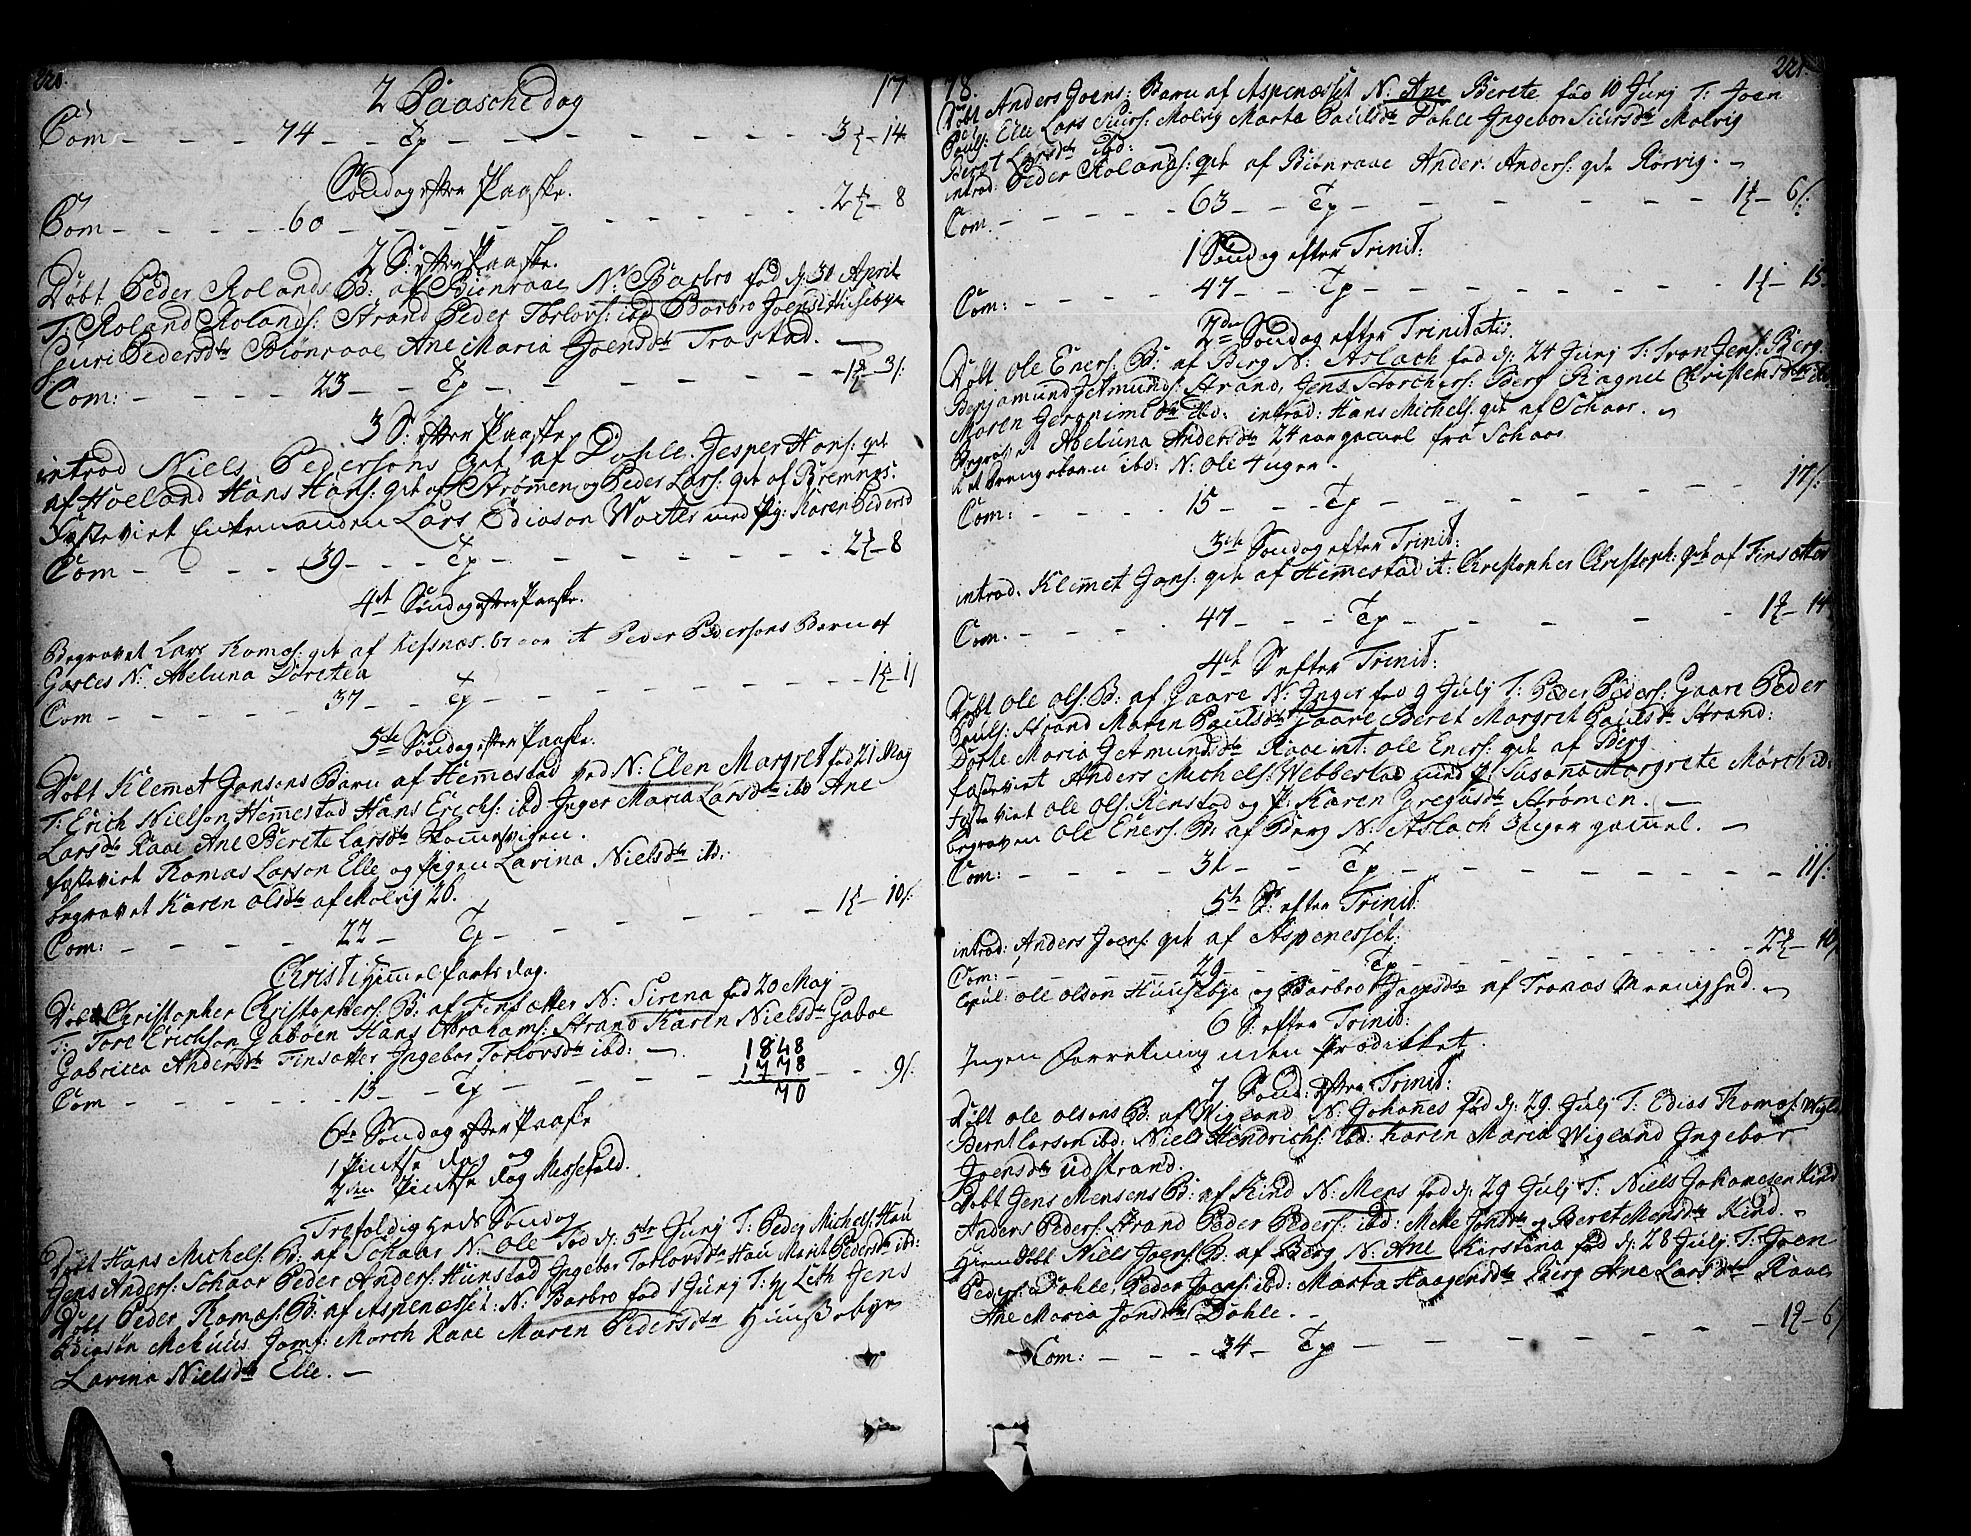 220. 2 Paaschedag 17
Com - - - 74 - - Tp - - - - - - 3 - 14
Søndag efter Paaske.
Com - - - - 60 - - - - - - - - 2 - 8
2 S: efter Paaske.
Døbt Peder Rolands B: af Biønraae N: Barbro fød d: 30 April
T: Roland Rolands: Strand Peder Torlovs: ibd Barbro Joensd Husebye
Guri Pedersdtr Biønraae Ane Maria Joensdtr Trastad.
Com: - - - 23 - - Tp - - - - - - 1 - 3/:
3 S: efter Paaske
introd Niels Pedersøns qvt af Dohle. Jesper Hans: qvt
af Hoeland Hans Hans: qvt af Strømen og Peder Lars: qvt af Bremnes:
Trolovirt Enkemanden Lars Ediason Voxter med Pig: Karen Pedersd
Com - - - - 39 - - - Tp - - - - - 2 - 8
4de Søndag efter Paaske.
Begravet Lars Tomæs: qvt af Refsnæs. 67 aar it Peder Pedersøns Barn af
Gaates N: Abeluna Doretea
Com - - - - - 37 - - Tp - - - - - - 1 - 11
5te Søndag efter Paaske.
Døbt Klemmet Jonsens Barn af Hemmestad ved N: Elen Margret fød 21 May
T: Erich Nielson Hemmestad Hans Erichs: ibd Inger Maria Larsdtr ibd Ane
Larsdtr Raae Ane Berete Larsdtr
Trolovirt Tomas Larson Elle og Pigen Lavina Nielsdtr ibd:
begravet Karen Olsdtr af Molvig 26.
Com: - - - - 22 - Tp - - - - - 1 - 10/:
Christi Himmelfarts dag.
Døbt Christopher Christophers: B: af Finsætter N: Sirena fød 20 May
T: Tore Erichson Gaböen Hans Abrahams: Strand Karen Nielsdtr Gaboe
Gabricca Andersdtr Finsætter Ingebor Torlovsdtr ibd:
1848
1778
70
Com - - - - 15 - - Tp - - - - - - 9/:
6te Søndag efter Paaske
1 Pintse dag og
2den Pintse dag Messefald.
Trefoldigheds Søndag
Døbt Hans Michels: B: af Schaar N: Ole fød d: 5te Junj T: Peder Michels: Hau
Jens Anders: Schaar Peder Anders: Hunstad Ingebor Torlovsdtr Hau Marit Pedersdtr ibd:
Døbt Peder Tomæs: B: af Aspenæsset: N: Barbro fød 1 Junj T: Leth Jens
Mehuus Jomf: Morch Raae Maren Pedersdtr Huusebye
Lavina Nielsdtr Elle. -
78. 221.
Døbt Anders Joens: Barn af Aspenæset N: Ane Berete fød 10 Junj T: Joen
Pouls: Elle Lars Siurs: Molvig Marta Poulsdtr Dohle Ingebor Siursdtr Molvig
Beret Larsdtr ibd:
introd: Peder Rolands: qvt af Biønraae Ander: Anders: qvt Rørvig. -
Com - - - - - 63 - - Tp - - - - - 1 - 6/:
1 Søndag efter Trinit:
Com: - - - - 47 - - Tp - - - - - - 1 - 15.
2den Søndag efter Trinitatis:
Døbt Ole Eners: B: af Berg N: Aslach fød d: 24 Junj T: Iver Jens: Berg.
Benjamund Jetmunds: Strand, Jens Storchers: Berg Ragnel Christensdtr ibd
Maren Jeronimi dtr ibd: introd: Hans Michels: qvt af Schaar.
Begravet Abeluna Andersdtr 24 aar gamel fra Schaar
Et Drengebarn ibd: N: Ole 4 uger.
Com: - - - - - 15 - - - Tp - - - - - - 17/:
3de Søndag efter Trinit:
introd. Klemet Jons: qvt af Hemmestad it: Christopher Christoph: qvt af Finsætter
Com. - - - - 47 - - - Tp - - - - 1 - 14
4de S efter Trinit:
Døbt Ole Ols: B: af Gaare N: Inger fød 9 Julj T: Peder Peders: Gaare Peder
Pouls: Strand Maren Paulsdtr Gaare Beret Margret Paulsdtr Strand:
Dohle Maria Jetmundsdtr Raae int: Ole Eners: qvt af Berg
Trolovirt Anders Michels: Webbestad med J Susana Margrete Mørch ibd:
Trolovirt Ole Ols: Renstad og P: Karen Gregusdtr Strømen. -
begraven Ole Eners: B: af Berg N: Aslach 3 uger gamel. -
Com: - - - - 31 - - Tp - - - - - - 11/:
5te S: efter Trinit:
introd: Anders Joens: qvt af Aspenesset:
Com: - - - - 29 - - - - Tp - - - - - 2 - 10/:
Copul: Ole Olson Huusebye og Barbro Joensdtr af Tronæs Menighed.
6 S: efter Trinit:
Ingen Forretning uden Prædikket.
7 Sønd: efter Trinit:
Døbt Ole Olsens B: af Wigland N: Johanes fød d: 29 Julj T: Edias Tomæs: Wigl:
Bernt Larsen ibd: Niels Hendrichs: ibd: Karen Maria Wigland Ingebor
Joensdtr Udstrand.
Døbt Jens Mensens B: af Kind N: Mens fød d: 29 Julj T: Niels Johanesen Kind
Anders Peders: Strand Peder Peders: ibd: Mette Jonsdtr og Beret Mensdtr Kind.
Hiemdøbt Niels Joens: B: af Berg N: Ane Kirstina fød d: 28 Julj T: Joen
Peders: Dohle, Peder Joens: ibd: Marta Haagensdtr Berg Ane Larsdtr Raae
Ane Maria Jonsdtr Dohle. -
Com: - - - - 34 - Tp - - - - - - 1 - 6/